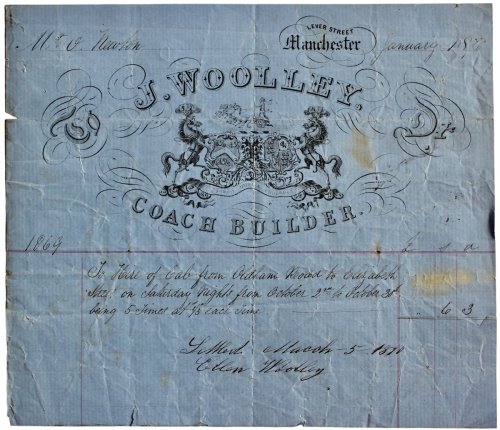 LEVER STREET
Manchester
Mr O. Newton
January 18
J. WOOLLEY.
To Dr
COACH BUILDER.
1869
£ s d
To Hire of Cab from Oldham Road to Elizabeth
Street on Saturday nights from October 2nd to October 30
being 5 times at 1/3 each time 6 3
Settled March 5 1870
Ellen Woolley